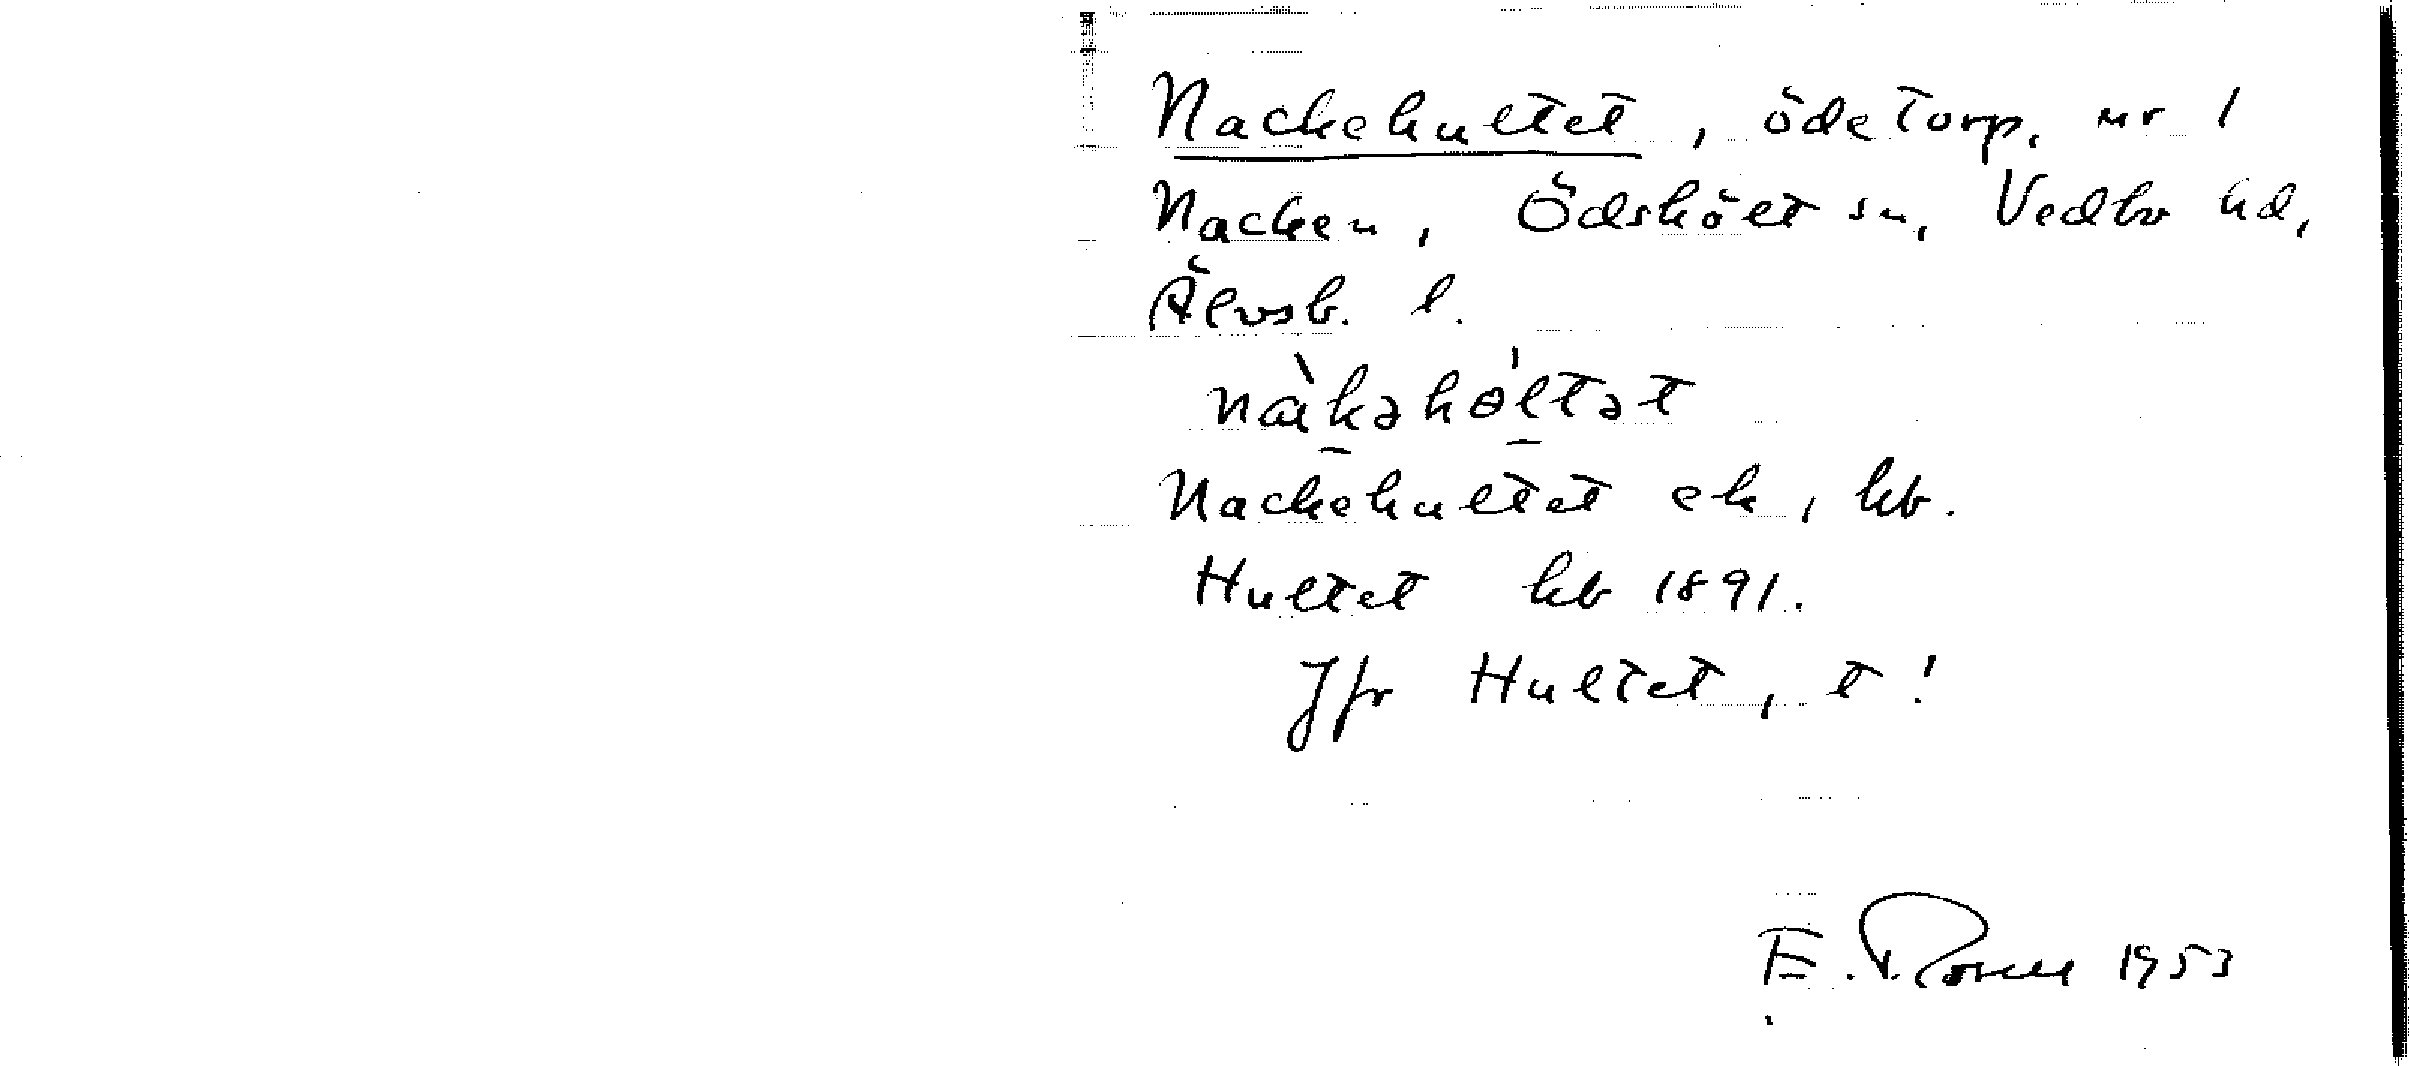 Nackehultet, ödetorp, nr 1
Nacken, Ödskölt sn, Vedbo hd,
Älvsb. l.
nàkəhɵ́ltət
Nackehultet ek, kb.
Hultet kb 1891.
Jfr Hultet, t!
E. 1953